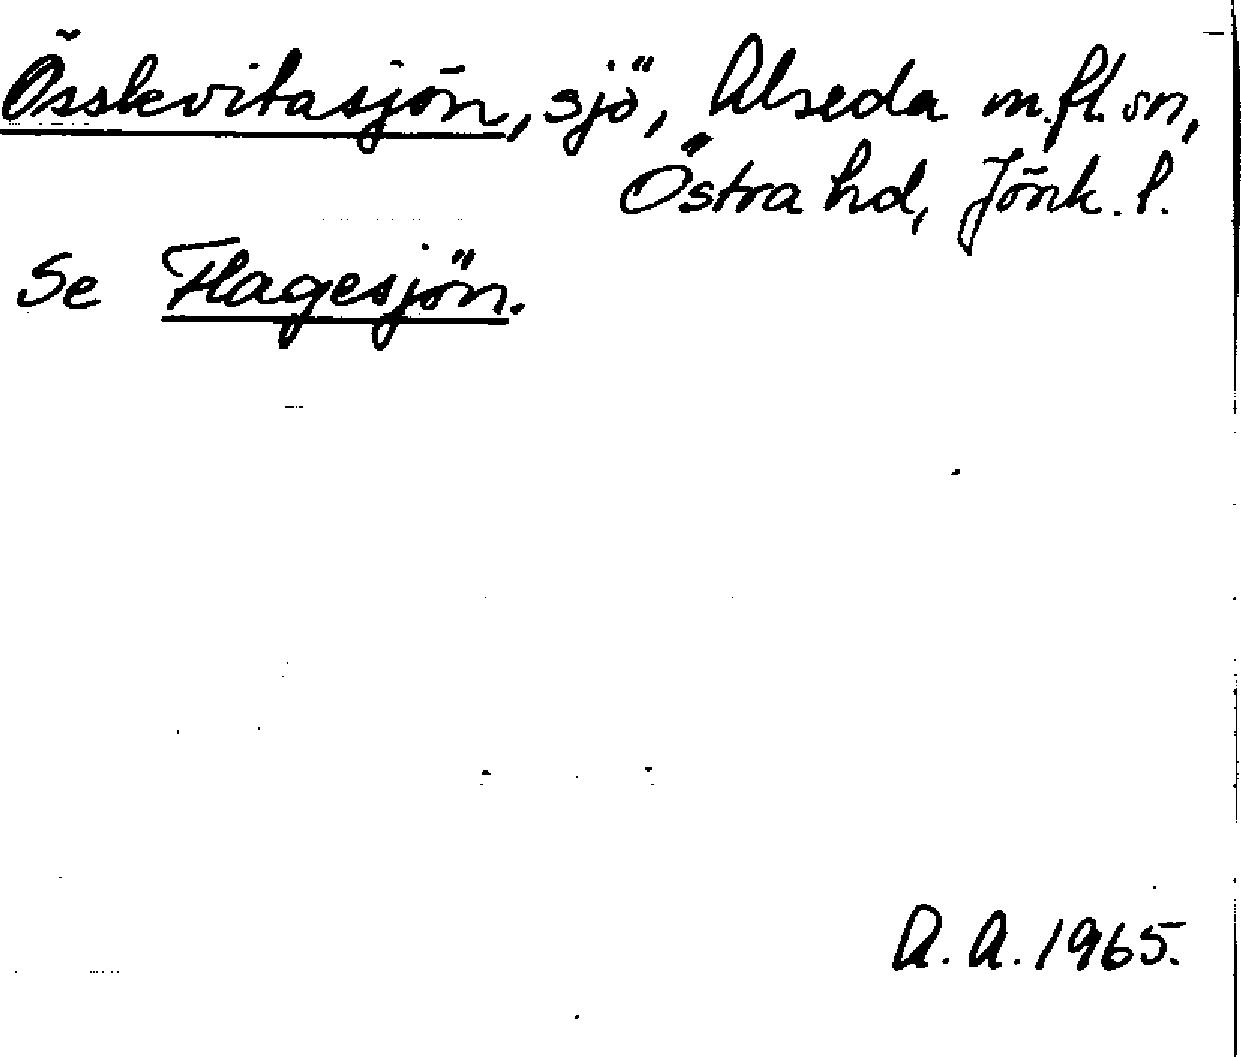 Össkvitasjön, sjö, Alseda m.fl. sn,
Östra hd, Jönk. l.
Se Flagesjön.
A. A. 1965.